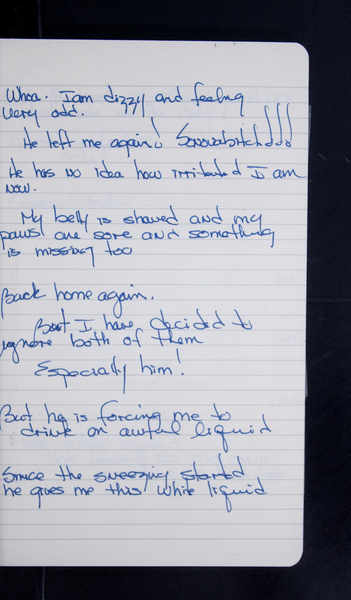 Whoa. I am dizzy and feeling
very odd.
He left me again! Sonovabitch!!!
He has no idea how irritated I am
now.
My belly is shaved and my
paws are sore and something
is missing too
Back home again.
But I have decided to
ignore both of them
Especially him!
But he is forcing me to
drink an awful liquid
Since the sneezing started
he gives me this white liquid